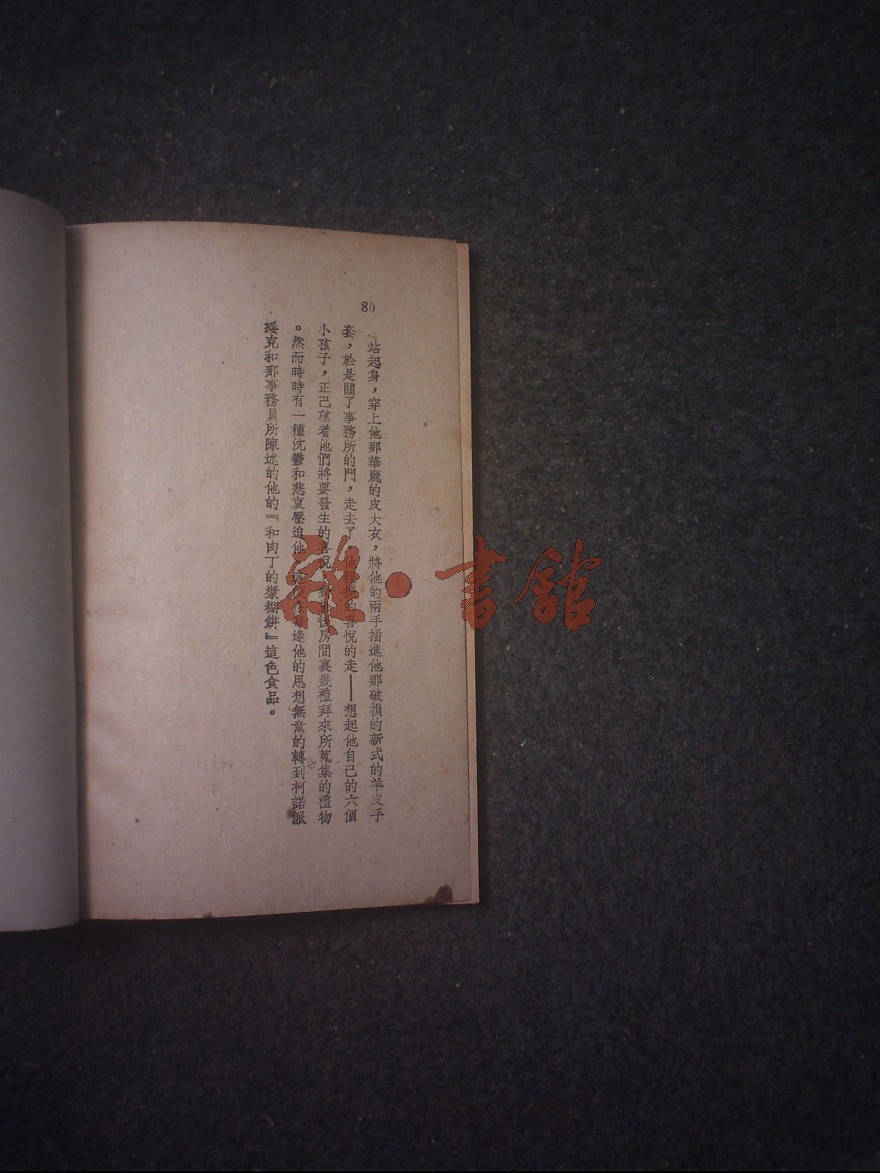 80
站起身，穿上他那華麗的皮大衣，將他的兩手插進他那破損的新式的羊皮手
套，於是關了事務所的門，走去了 喜悅的走——想起他自己的六個
小孩子，正巴望着他們將要發生的喜悅 後房間裏幾禮拜來所蒐集的禮物
。然而時時有一種沈鬱和悲哀壓迫他 每逢他的思想無意的轉到柯諾派
綏克和那事務員所陳述的他的『和肉丁的漿糊餅』這色食品。
雜·書館